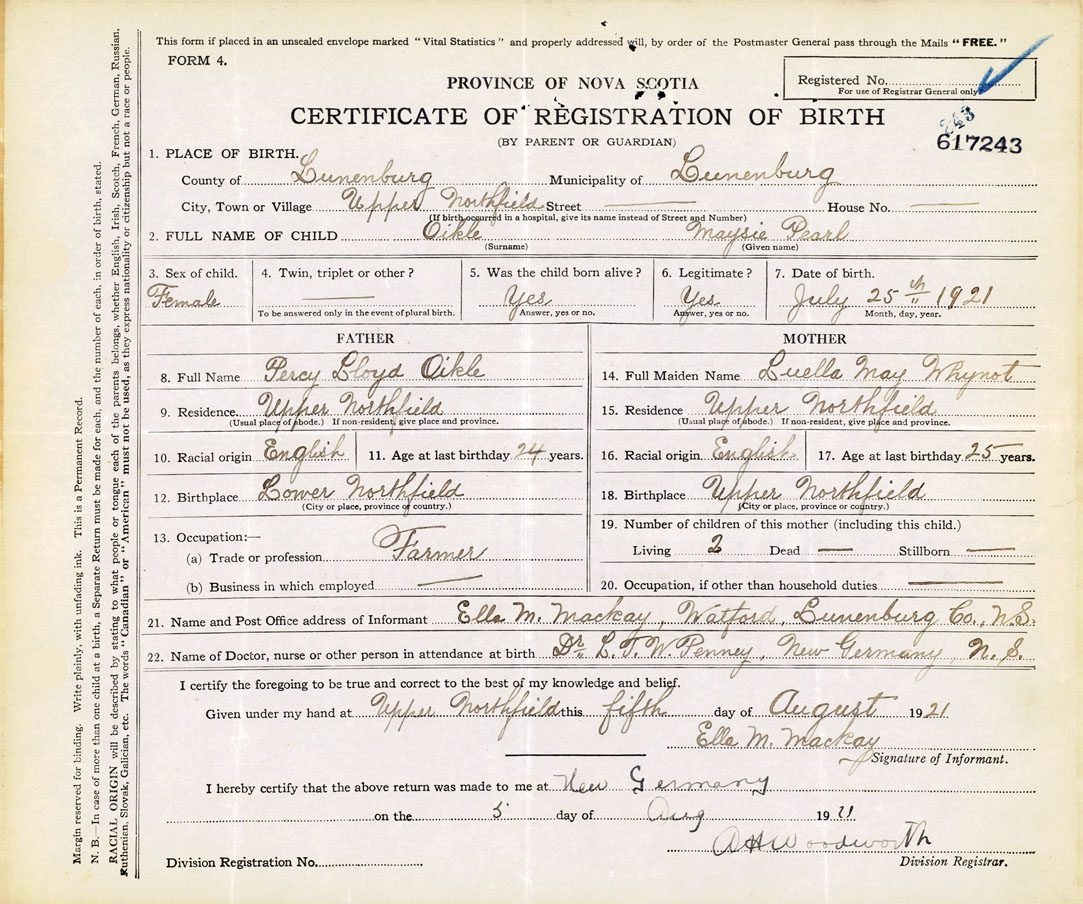 This form if placed in an unsealed envelope marked "Vital Statistics" and properly addressed will, by order of the Postmaster General pass through the Mails "FREE."
FORM 4.
Registered No.
For use of Registrar General only
PROVINCE OF NOVA SCOTIA
CERTIFICATE OF REGISTRATION OF BIRTH
243
617243
(BY PARENT OR GUARDIAN)
1. PLACE OF BIRTH.
County of Lunenburg Municipality of Lunenburg
City, Town or Village Upper Northfield Street — House No. —
(If birth occurred in a hospital, give its name instead of Street and Number)
2. FULL NAME OF CHILD Oikle Maysie Pearl
(Surname) (Given name)
3. Sex of child. 4. Twin, triplet or other? 5. Was the child born alive? 6. Legitimate? 7. Date of birth.
Female — Yes Yes July 25th 1921
To be answered only in the event of plural birth. Answer, yes or no. Answer, yes or no. Month, day, year.
FATHER MOTHER
8. Full Name Percy Lloyd Oikle 14. Full Maiden Name Luella May Whynot
9. Residence. Upper Northfield 15. Residence Upper Northfield
(Usual place of abode.) If non-resident, give place and province. (Usual place of abode.) If non-resident, give place and province.
10. Racial origin English 11. Age at last birthday 24 years. 16. Racial origin English 17. Age at last birthday 25 years.
12. Birthplace Lower Northfield 18. Birthplace Upper Northfield
(City or place, province or country.) (City or place, province or country.)
13. Occupation:— 19. Number of children of this mother (including this child.)
(a) Trade or profession Farmer Living 2 Dead — Stillborn —
(b) Business in which employed — 20. Occupation, if other than household duties —
21. Name and Post Office address of Informant Ella M. Mackay, Watford, Lunenburg Co., N.S.
22. Name of Doctor, nurse or other person in attendance at birth Dr. L. T. W. Penney, New Germany, N. S.
I certify the foregoing to be true and correct to the best of my knowledge and belief.
Given under my hand at Upper Northfield this fifth day of August 1921
Ella M. Mackay
Signature of Informant.
I hereby certify that the above return was made to me at New Germany
on the 5 day of Aug 1921
A H Woodworth
Division Registration No. Division Registrar.
Margin reserved for binding. Write plainly, with unfading ink. This is a Permanent Record.
N. B.—In case of more than one child at a birth, a Separate Return must be made for each, and the number of each, in order of birth, stated.
RACIAL ORIGIN will be described by stating to what people or tongue each of the parents belongs, whether English, Irish, Scotch, French, German, Russian,
Ruthenian, Slovak, Galician, etc. The words "Canadian" or "American" must not be used, as they express nationality or citizenship but not a race or people.